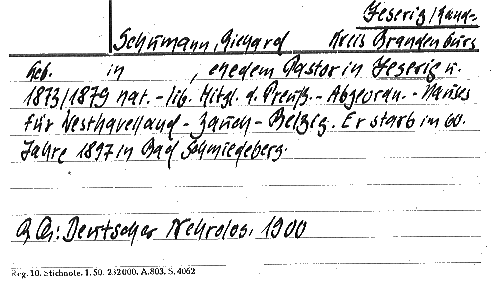 Jeserig/Land-
Schumann, Richard Kreis Brandenburg
Geb. in , ehedem Pastor in Jeserig u.
1873/1879 nat.-lib. Mitgl. d. Preuß.-Abgeordn.-Hauses
für Westhavelland-Zauch-Belzig. Er starb im 60.
Jahre 1897 in Bad Schmiedeberg.
Deutscher Nekrolog. 1900
Reg. 10. Stichnote. 1. 50. 232000. A.803. S. 4062